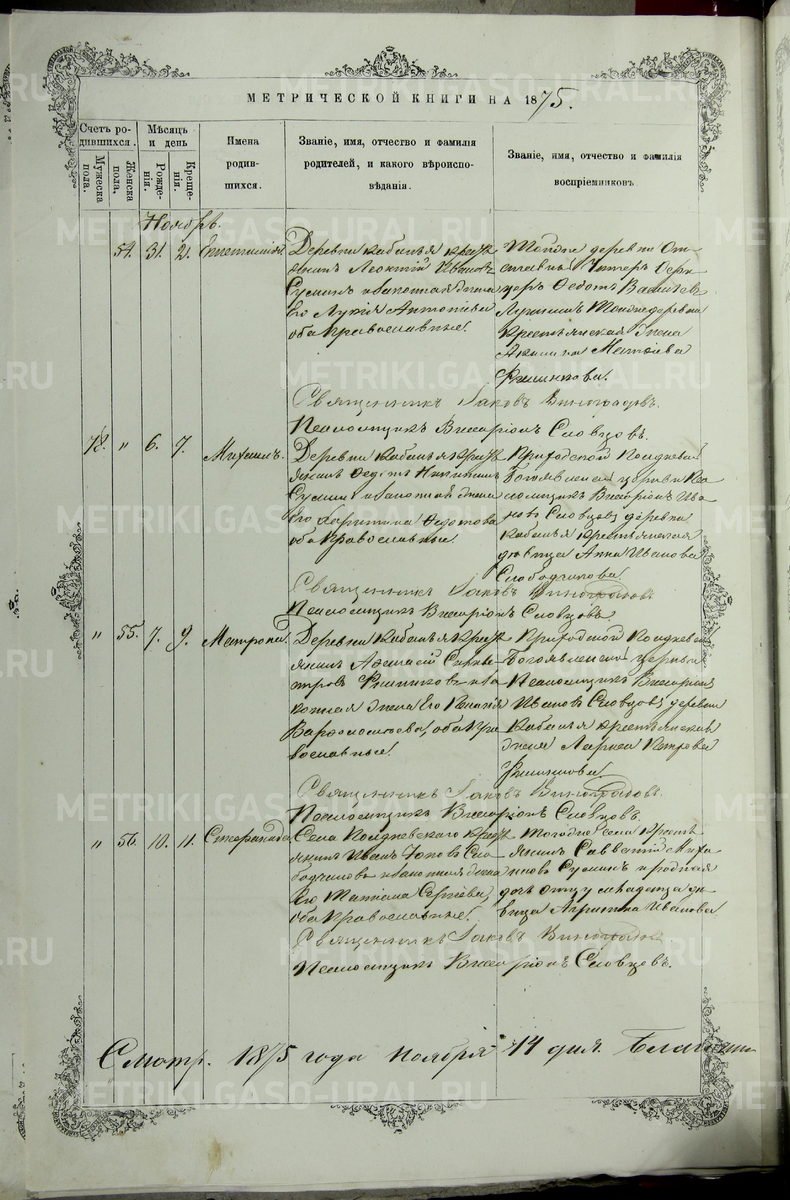 МЕТРИЧЕСКОЙ КНИГИ НА 1875.
Счетъ ро-
дившихся.
Мужеска
пола.
Женска
пола.
Мѣсяцъ
и день
Рожде-
нія.
Креще-
нія.
Имена
родив-
шихся.
Званіе, имя, отчество и фамилія
родителей, и какого вѣроиспо-
вѣданія.
Званіе, имя, отчество и фамилія
воспріемниковъ
Ноябрь.
54. 31. 2.
Деревни Кабанья крестья
янинъ Леонтій Ивановъ
Сухихъ и законная жена
Его Лукія Антонова
оба Православные.
Тойже деревни От
ставный Унтеръ Офи
церъ Федотъ Васильевъ
Тойже деревни
Крестьянская жена
Акилина Матѳіева
Священникъ Іаковъ Виноградовъ.
Псаломщикъ Виссаріонъ Словцовъ.
78. " 6. 7. Михаилъ.
Деревни Кабанья крест
янинъ Федотъ Никитинъ
и законная жена
Его Харитина Федотова
оба Православные.
Приходской
Богоявленской церкви Пса
ломщикъ Виссаріонъ Ива
новъ Словцовъ деревни
Кабанья крестьянская
дѣвица Анна Иванова
Слободчикова.
Священникъ Іаковъ Виноградовъ
Псаломщикъ Виссаріонъ Словцовъ.
" 55. 7. 9. Матрона.
Деревни Кабанья крест
янинъ
и за
конная жена Его
Варѳоломеева, оба Пра
вославные.
Приходской
Богоявленской церкви
Псаломщикъ Виссаріонъ
Ивановъ Словцовъ деревни
Кабанья крестьянская
жена Лариса Петрова
Священникъ Іаковъ Виноградовъ.
Псаломщикъ Виссаріонъ Словцовъ.
" 56. 10. 11. Стефанида
Села крест
янинъ Иванъ Іаковъ Сло
бодчиковъ и законная жена
Его Татіана Сергѣева,
оба Православные.
Тогоже села Крест
янинъ Савватій Миха
иловъ и родная
дочь отцу младенца дѣ
вица Агрипина Иванова
Священникъ Іаковъ Виноградовъ
Псаломщикъ Виссаріонъ Словцовъ.
Смотр. 1875 года ноября 14 дня.
METRIKI.GASO-URAL.RU